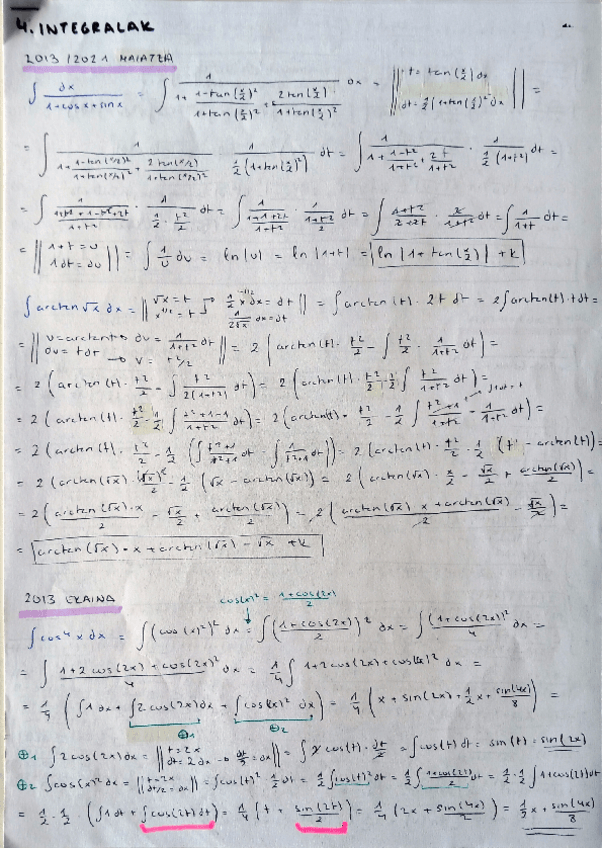 4. INTEGRALAK
2013 / 2021 MAIATZA
∫ dx / (1+cosx+sinx) = ∫ 1 / (1 + (1-tan(x/2)²)/(1+tan(x/2)²) + 2tan(x/2)/(1+tan(x/2)²)) dx = || t = tan(x/2) dx  dt = 1/2 (1+tan(x/2)²) dx || =
= ∫ 1 / (1 + (1-tan(x/2)²)/(1+tan(x/2)²) + 2tan(x/2)/(1+tan(x/2)²)) · 1 / (1/2 (1+tan(x/2)²)) dt = ∫ 1 / (1 + (1-t²)/(1+t²) + 2t/(1+t²)) · 1 / (1/2 (1+t²)) dt =
= ∫ 1 / ((1+t²+1-t²+2t)/(1+t²)) · dt = ∫ 1 / ((1+1+2t)/(1+t²)) · 1 / ((1+t²)/2) dt = ∫ (1+t²)/(2+2t) · 2/(1+t²) dt = ∫ 1/(1+t) dt =
= || 1+t = u  1dt = du || = ∫ 1/u du = ln|u| = ln|1+t| = ln|1+tan(x/2)| + k
∫ arctan√x dx = || √x = t  x^(1/2) = t  1/2 x^(-1/2) dx = dt  1/(2√x) dx = dt || = ∫ arctan(t) · 2t dt = 2∫ arctan(t) · t dt =
= || u = arctant → du = 1/(1+t²) dt  dv = t dt → v = t²/2 || = 2 ( arctan(t) · t²/2 - ∫ t²/2 · 1/(1+t²) dt ) =
= 2 ( arctan(t) · t²/2 - ∫ t²/(2(1+t²)) dt ) = 2 ( arctan(t) · t²/2 - 1/2 ∫ t²/(1+t²) dt ) =
= 2 ( arctan(t) · t²/2 - 1/2 ∫ (t²+1-1)/(1+t²) dt ) = 2 ( arctan(t) · t²/2 - 1/2 ∫ (t²+1)/(1+t²) - 1/(1+t²) dt ) =
= 2 ( arctan(t) · t²/2 - 1/2 ( ∫ (t²+1)/(t²+1) dt - ∫ 1/(t²+1) dt )) = 2 ( arctan(t) · t²/2 - 1/2 (t - arctan(t)) =
= 2 ( arctan(√x) · (√x)²/2 - 1/2 (√x - arctan(√x)) = 2 ( arctan(√x) · x/2 - √x/2 + arctan(√x)/2 ) =
= 2 ( arctan(√x)·x/2 - √x/2 + arctan(√x)/2 ) = 2 ( (arctan(√x) x + arctan(√x))/2 - √x/2 ) =
= arctan(√x) · x + arctan(√x) - √x + k
2013 EKAINA
cos(x)² = (1+cos(2x))/2
∫ cos⁴x dx = ∫ (cos(x)²)² dx = ∫ ((1+cos(2x))/2)² dx = ∫ (1+cos(2x))²/4 dx =
= ∫ (1+2cos(2x)+cos(2x)²)/4 dx = 1/4 ∫ 1+2cos(2x)+cos(x)² dx =
= 1/4 ( ∫ 1dx + ∫ 2cos(2x)dx + ∫ cos(x)² dx ) = 1/4 ( x + sin(2x) + 1/2 x + sin(4x)/8 ) =
⊕1 ⊕2
⊕1 ∫ 2cos(2x)dx = || t = 2x  dt = 2dx → dt/2 = dx || = ∫ 2cos(t) · dt/2 = ∫ cos(t) dt = sin(t) = sin(2x)
⊕2 ∫ cos(x)² dx = || t = 2x  dt/2 = dx || = ∫ cos(t)² · 1/2 dt = 1/2 ∫ cos(t)² dt = 1/2 ∫ (1+cos(2t))/2 dt = 1/2 · 1/2 ∫ 1+cos(2t)dt
= 1/2 · 1/2 · ( ∫ 1dt + ∫ cos(2t)dt ) = 1/4 ( t + sin(2t)/2 ) = 1/4 ( 2x + sin(4x)/2 ) = 1/2 x + sin(4x)/8